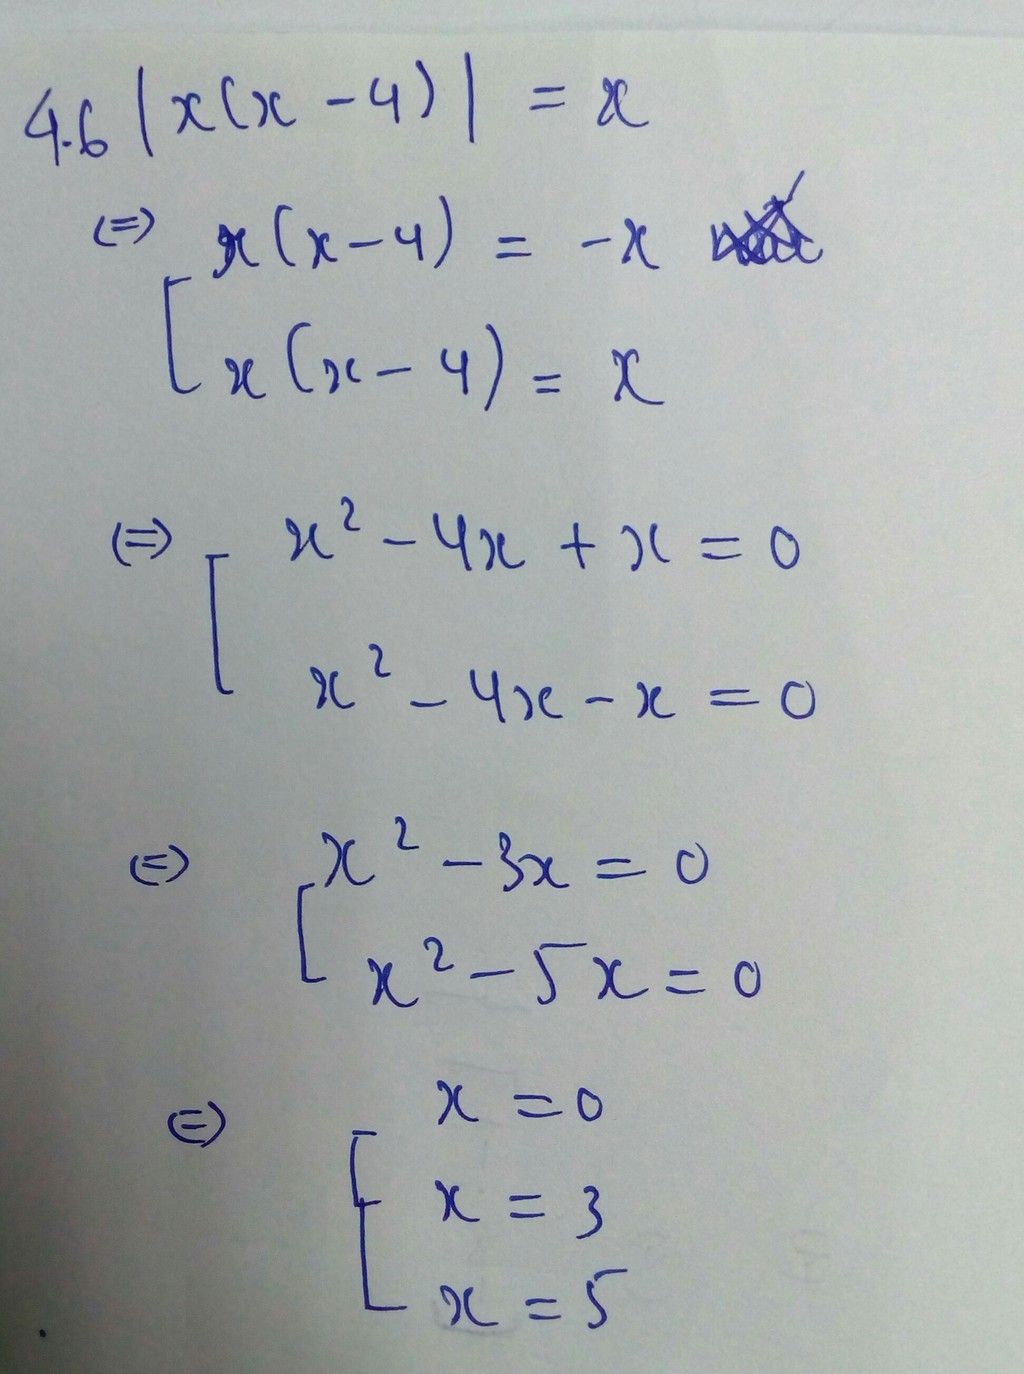 4.6 |x(x - 4)| = x
(=) x(x - 4) = -x
[ x(x - 4) = x
(=) [ x² - 4x + x = 0
x² - 4x - x = 0
(=) [ x² - 3x = 0
x² - 5x = 0
(=) [ x = 0
x = 3
x = 5